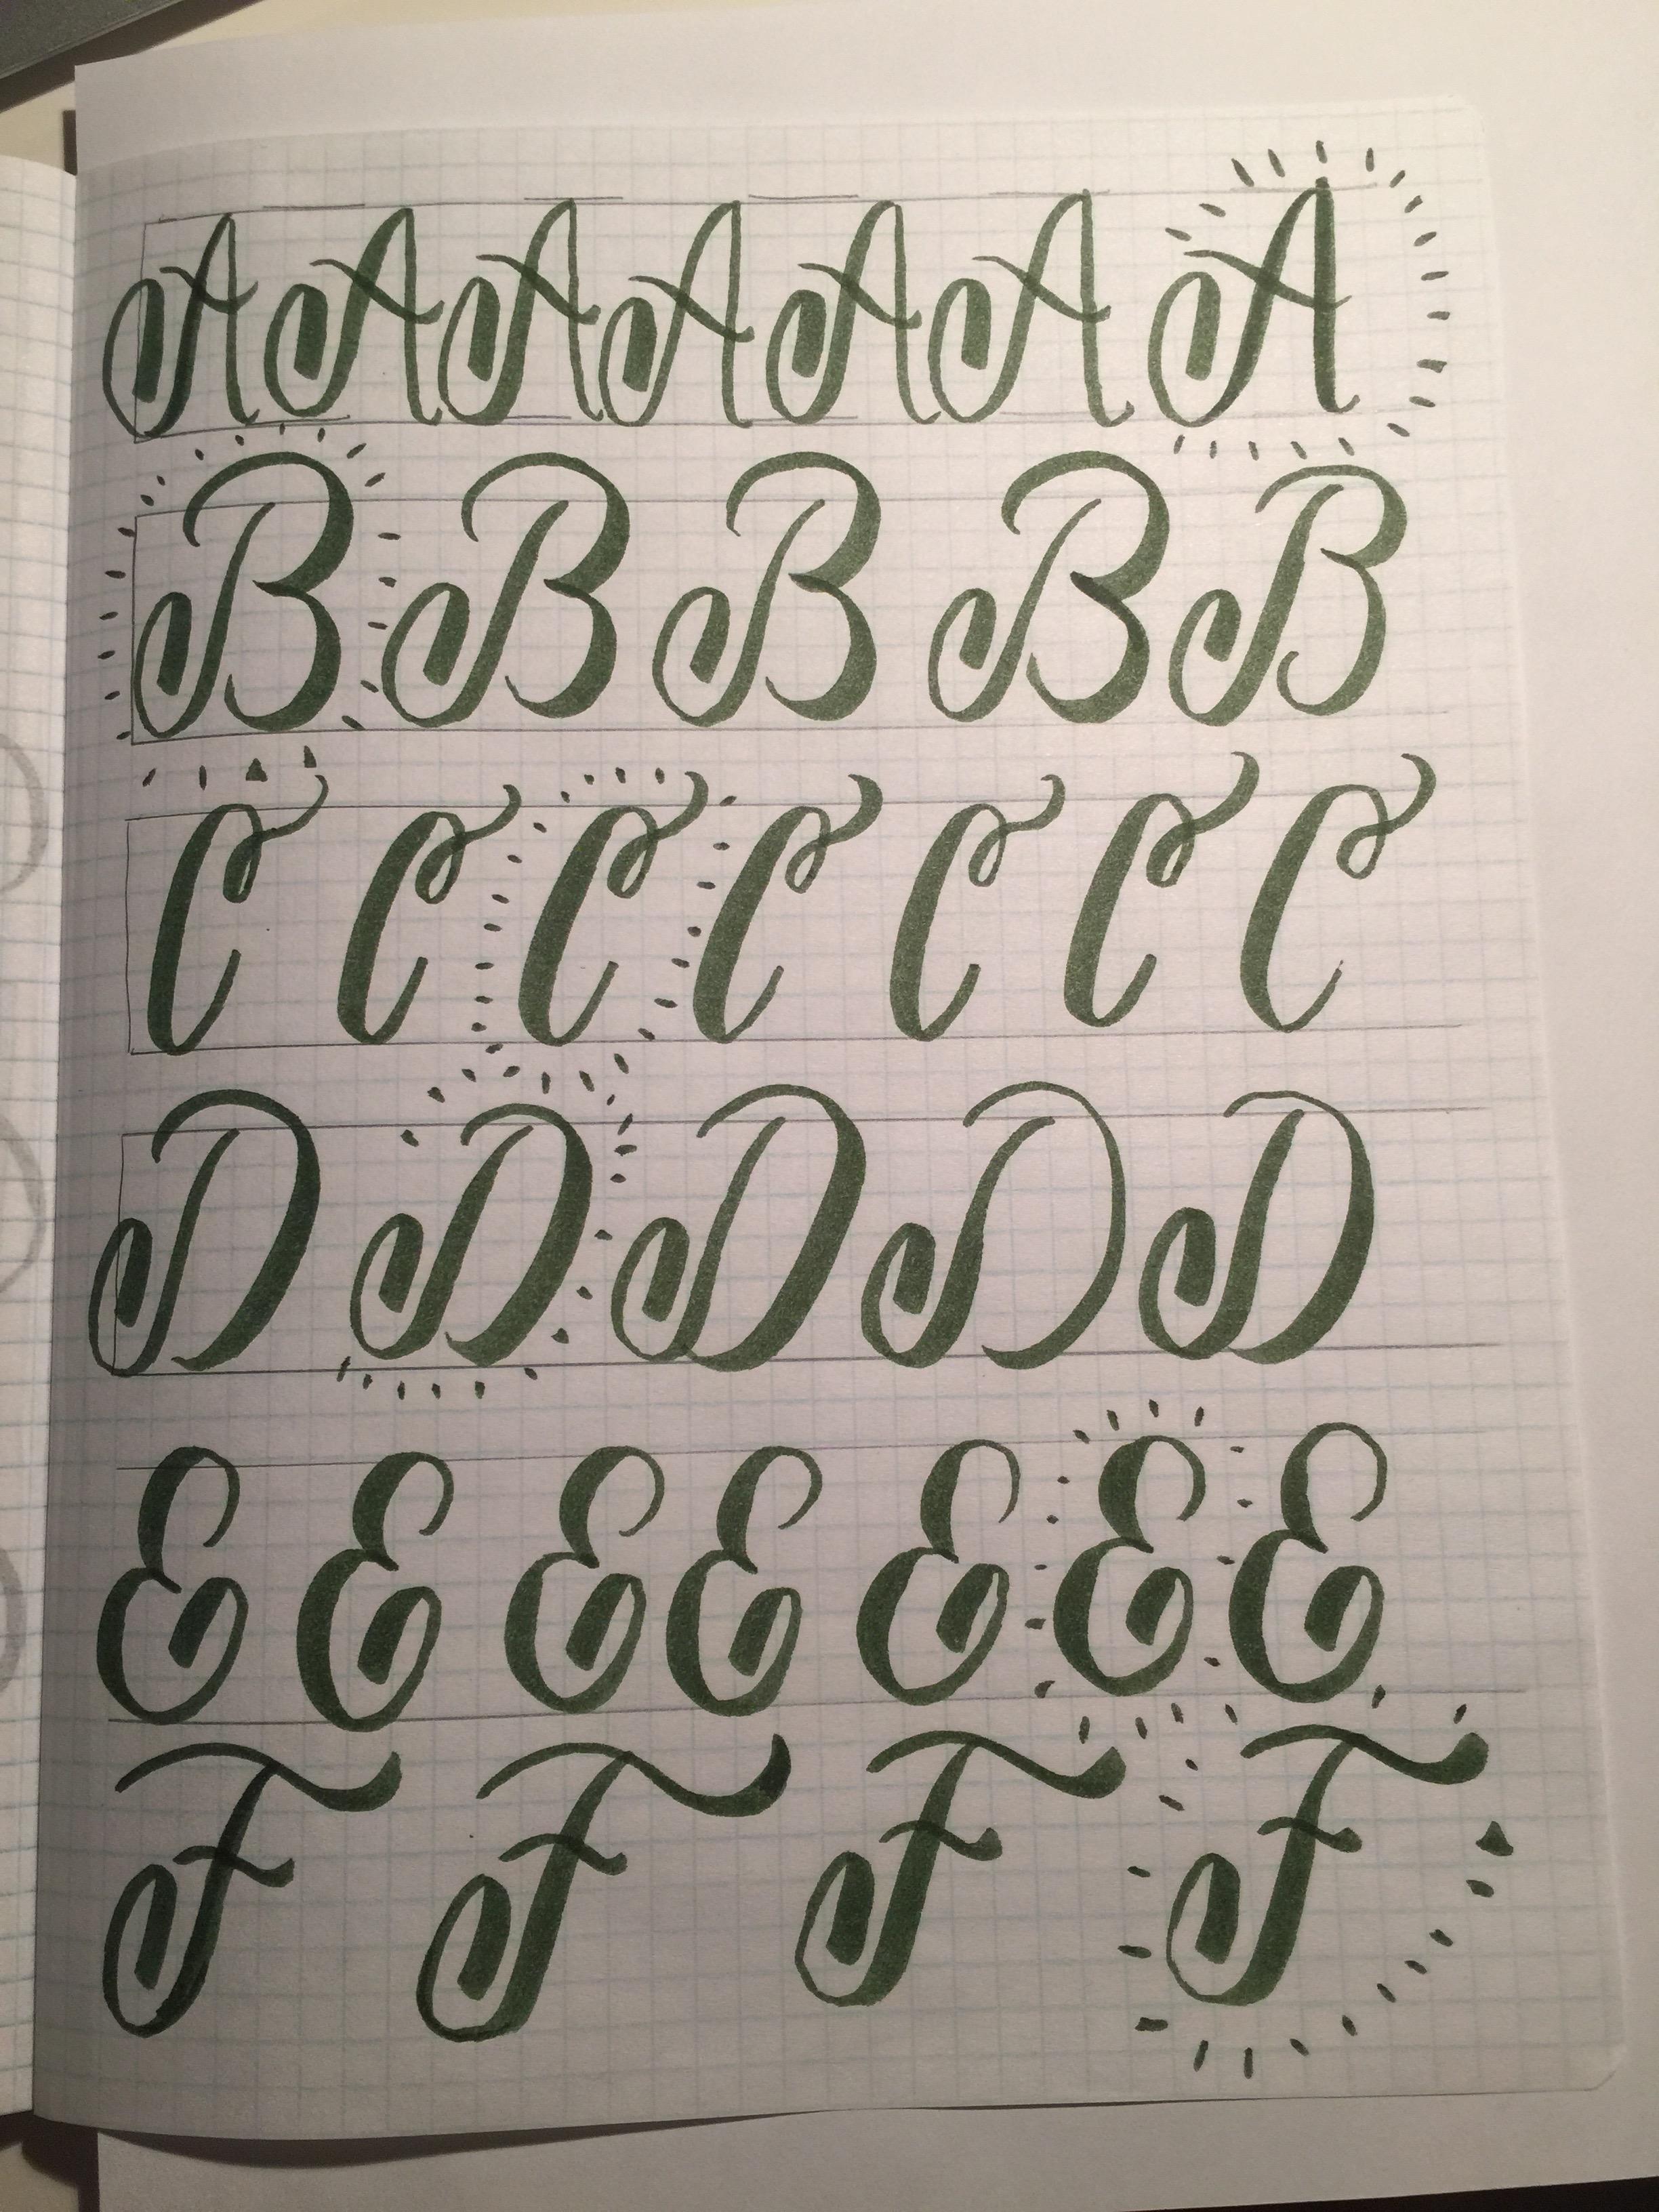 A A A A A A A
B B B B B
C C C C C C C
D D D D D
E E E E E E E
F F F F